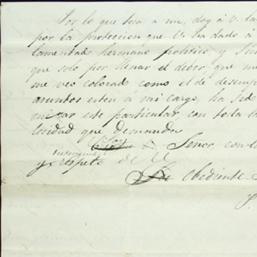 Por lo que hace a mi, doy á V. la
por la proteccion que V. ha dado á
lamentado hermano politico y
que solo por llenar el deber, que me
me veo colorado como el de desem
asuntos esten á mi cargo, ha sido
mirar este particular, con toda la
que demanda
Señor, con la
y respeto de V.
Obediente S